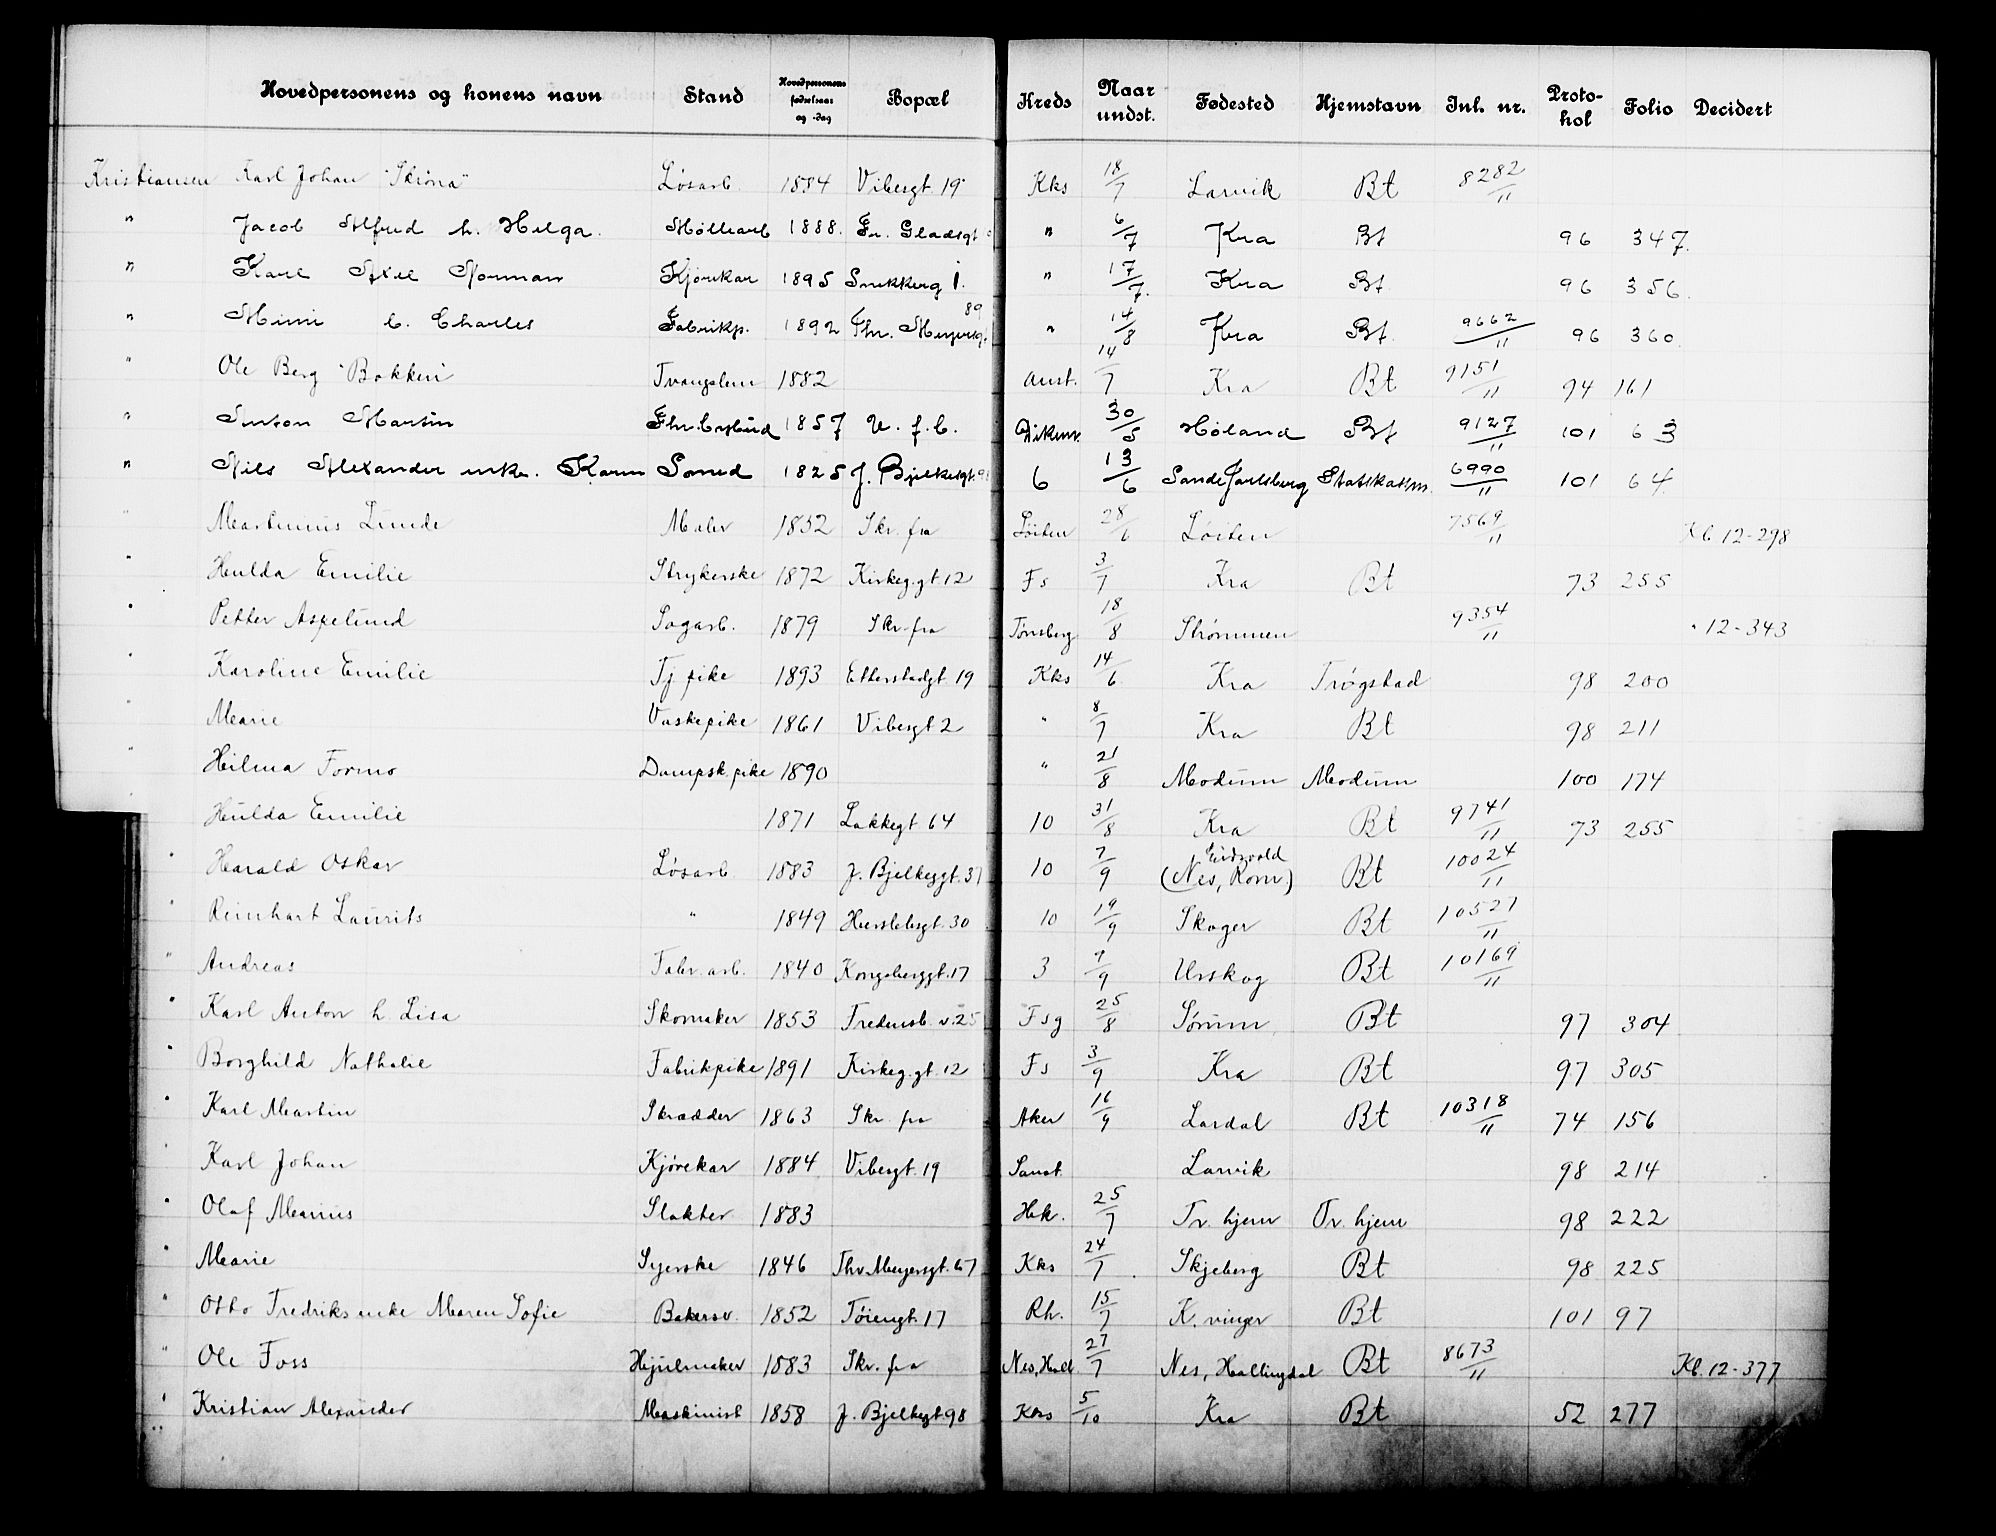 Hovedpersonens og konens navn Stand Hovedpersonens fødselsaar og -dag Bopæl Kreds Naar undst. Fødested Hjemstavn Inl. nr. Protokol Folio Decidert
Kristiansen Karl Johan "Skrøna" Løsarb. 1884 Vibesgt. 19 Kks 18/7 Larvik Bt 8282/11
" Jacob Alfred h. Helga. Møllearb 1888. Fr. Gladsgt " 6/7 Kra Bt 96 347.
" Karl Axel Norman Kjørekar 1895 Snekkerg 1. " 17/7. Kra Bt 96 356.
" Mimi C. Charles Fabrikp. 1892 Thv. Meyersgt. 89 " 14/8 Kra Bt. 9662/11 96 360.
" Ole Berg "Bakken" Tvangslem 1882 Anst. 14/7 Kra Bt 9151/11 94 161
" Anton Martin 1857 U. f. b. Dikem. 30/5 Høland Bt 9127/11 101 63
" Nils Alexander enke. Karen Smed 1825 J. Bjelkesgt. 6 13/6 Sande Jarlsberg Statskassen. 6990/11 101 64
" Martinius Lunde Maler 1852 Skr. fra Løiten 28/6 Løiten 7569/11 Kl. 12-298
" Hulda Emilie Strykerske 1872 Kirkeg.gt. 12 Fs 3/7 Kra Bt 73 255
" Petter Aspelund Sagarb. 1879 Skr. fra Tønsberg 18/8 Strømmen 9354/11 " 12-343
" Karoline Emilie Tj pike 1893 Etterstadgt. 19 Kks 14/6 Kra Trøgstad 98 200
" Marie Vaskepike 1861 Vibesgt 2 " 8/7 Kra Bt 98 211
" Hilma Formo Dampsk.pike 1890 " 21/8 Modum Modum 100 174
" Hulda Emilie 1871 Lakkegt 64 10 31/8 Kra Bt 9741/11 73 255
" Harald Oskar Løsarb. 1883 J. Bjelkesgt. 37 10 7/9 Eidsvold (Nes, Rom.) Bt 10024/11
" Reinhart Laurits " 1849 Herslebsgt. 30 10 19/9 Skoger Bt 10527/11
" Andreas Fabr. arb. 1840 Kongsberggt. 17 3 9/9 Urskog Bt 10169/11
" Karl Anton h Lisa Skomaker 1853 Fredensb. v. 25 Fsg 25/8 Sørum Bt 97 304
" Borghild Nathalie Fabrikpike 1891 Kirkeg.gt. 12 Fs 3/9 Kra Bt 97 305
" Karl Martin Skrædder 1863 Skr. fra Aker 16/9 Lardal Bt 10318/11 74 156
" Karl Johan Kjørekar 1884 Vibesgt. 19 Sanct. Larvik 98 214
" Olaf Marius Slakter 1883 Hek. 25/7 Tr. hjem Tr. hjem 98 222
" Marie Syerske 1846 Thv Meyersgt. 67 Kks 24/7 Skjeberg Bt 98 225
" Otto Fredriks enke Maren Sofie Bakersv. 1852 Tøiengt. 17 Rh. 15/7 K. vinger Bt 101 97
" Ole Foss Hjulmaker 1883 Skr. fra Nes, Hall. 27/7 Nes, Hallingdal Bt 8673/11 Kl. 12-377
" Kristian Alexander Maskinist 1858 J. Bjelkesgt 98 Kks 5/10 Kra Bt 52 277